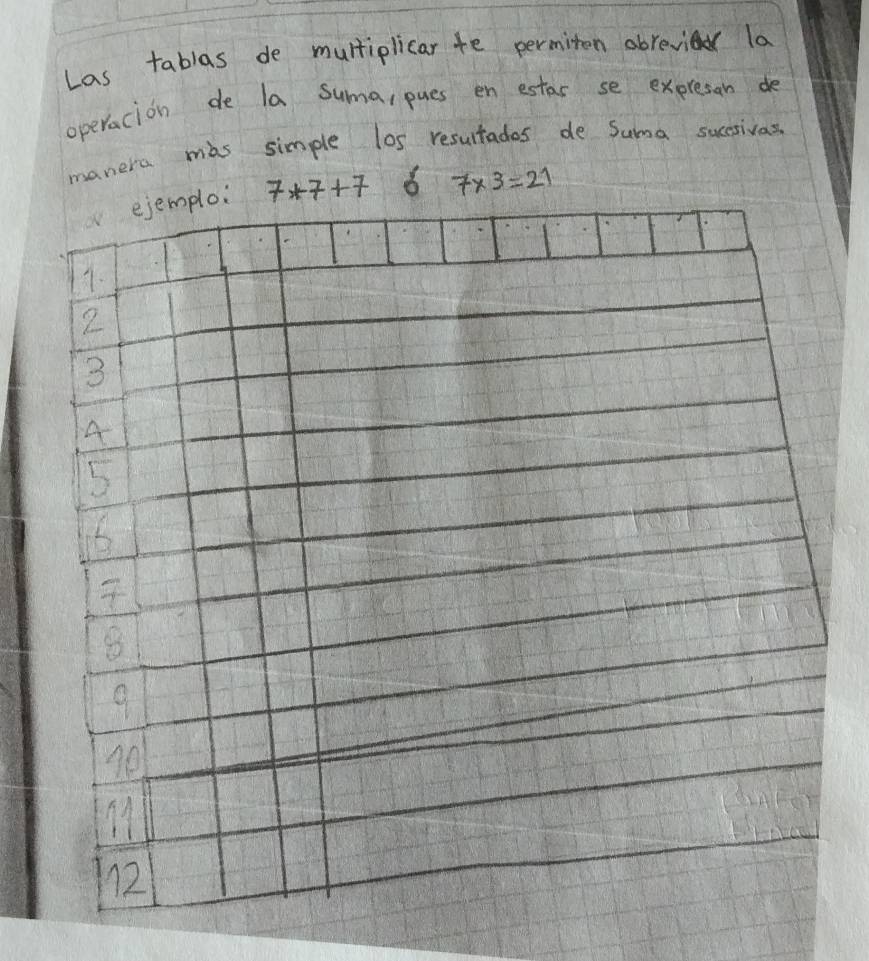 Las tablas de multiplicar te permiten abreviar la
operación de la suma, pues en estas se expresan de
manera más simple los resultados de suma sucesivas.
ejemplo: 7+7+7 ó 7x3=21
1.
2
3
4
5
6
7
8
9
10
11
12